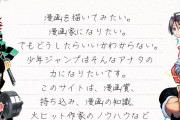 漫画を描いてみたい。
漫画家になりたい。
でもどうしたらいいかわからない。
少年ジャンプはそんなアナタの
力になりたいです。
このサイトは、漫画賞、
持ち込み、漫画の知識、
大ヒット作家のノウハウなど